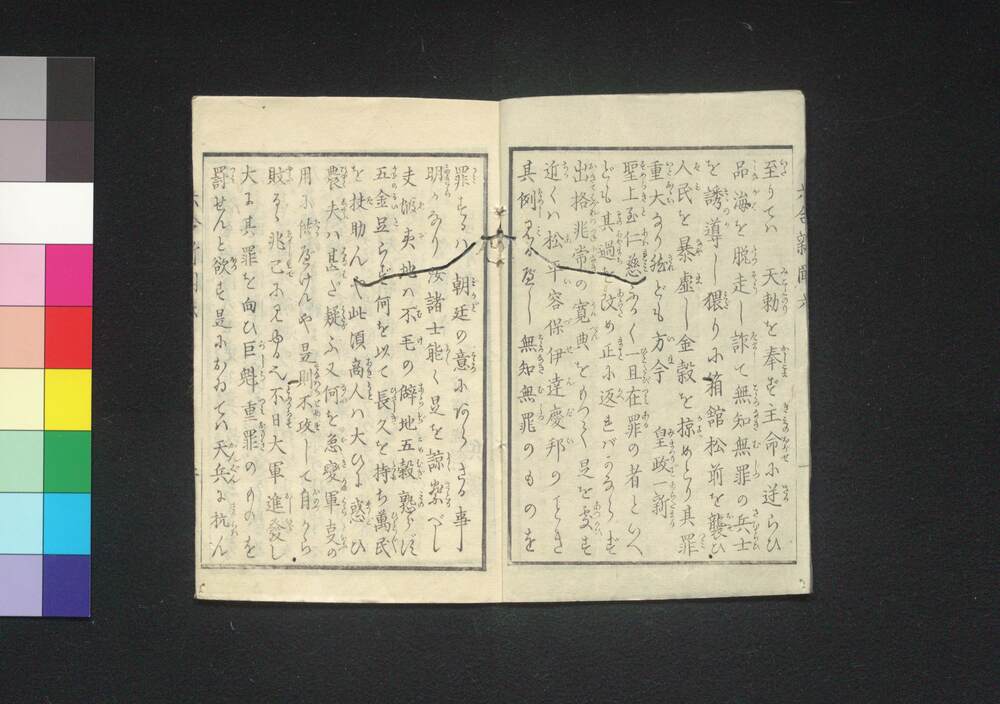 至りてハ 天勅を奉ぜず王命に逆らひ
品海を脱走し詐て無知無罪の兵士
を誘導し猥りに箱館松前を襲ひ
人民を暴虐し金穀を掠めとり其罪
重大なり然ども方今 皇政一新
聖上至仁慈なるべく一旦在罪の者といへ
ども其過を改め正に返れバかならず
出格非常の寛典をもつて是を処す
近くハ松平容保伊達慶邦のごとき
其例見るべし無知無罪のものを
罪するハ 朝廷の意にあらざる事
明かなり汝諸士能く是を諒察べし
夫蝦夷地ハ不毛の僻地五穀熟らず
五金足らず何を以て長久を持ち萬民
を扶助んや此頃商人ハ大ひに惑ひ
農夫ハ甚だ疑ふ又何を急変軍吏の
用に供すべけんや是則不攻して自から
敗るゝ兆己に見ゆる
不日大軍進發し
大に其罪を向ひ巨魁重罪のものを
罰せんと欲す是においてハ天兵に抗ん
六合新聞六